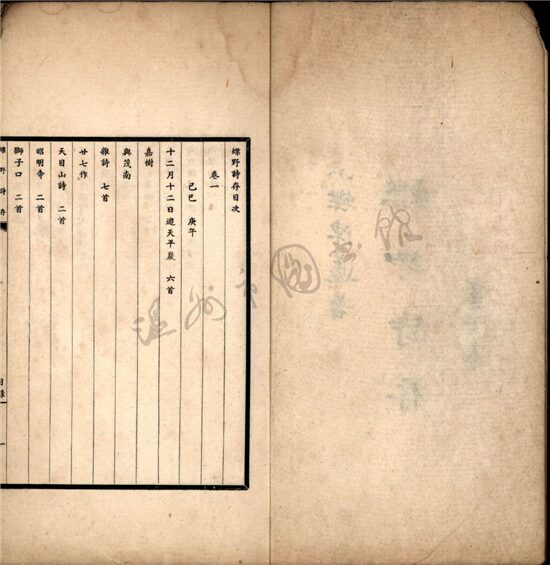 野詩存目次
卷一
己巳 庚午
十二月十二日遊天平巖 六首
嘉樹
與茂南
雜詩 七首
廿七作
天目山詩 二首
昭明寺 二首
獅子口 二首
野詩存
目錄
一
温州市圖書館